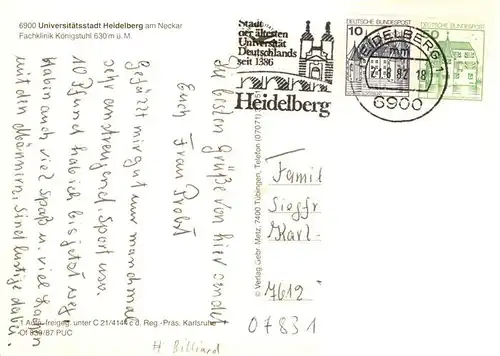 6900 Universitätsstadt Heidelberg am Neckar
Fachklinik Königstuhl 630 m ü. M.
Die besten Grüße von hier sendet
Euch Frau Probst
Gefällt mir gut nur manchmal
sehr anstrengend. Sport usw.
10 Pfund hab ich bis jetzt weg.
Haben auch viel Spaß u. viel
mit den Männern. Sind lustige dabei.
1 Aufn. freigeg. unter C 21/4144 c d. Reg.-Präs. Karlsruhe
Of 839/87 PUC
# Billiard
© Verlag Gebr. Metz, 7400 Tübingen, Telefon (07071)
Stadt
der ältesten
Universität
Deutschlands
seit 1386
Heidelberg
DEUTSCHE BUNDESPOST
10
DEUTSCHE BUNDESPOST
HEIDELBERG
mm
18
6900
Famil
Siegfr
Karl-
7612
07831